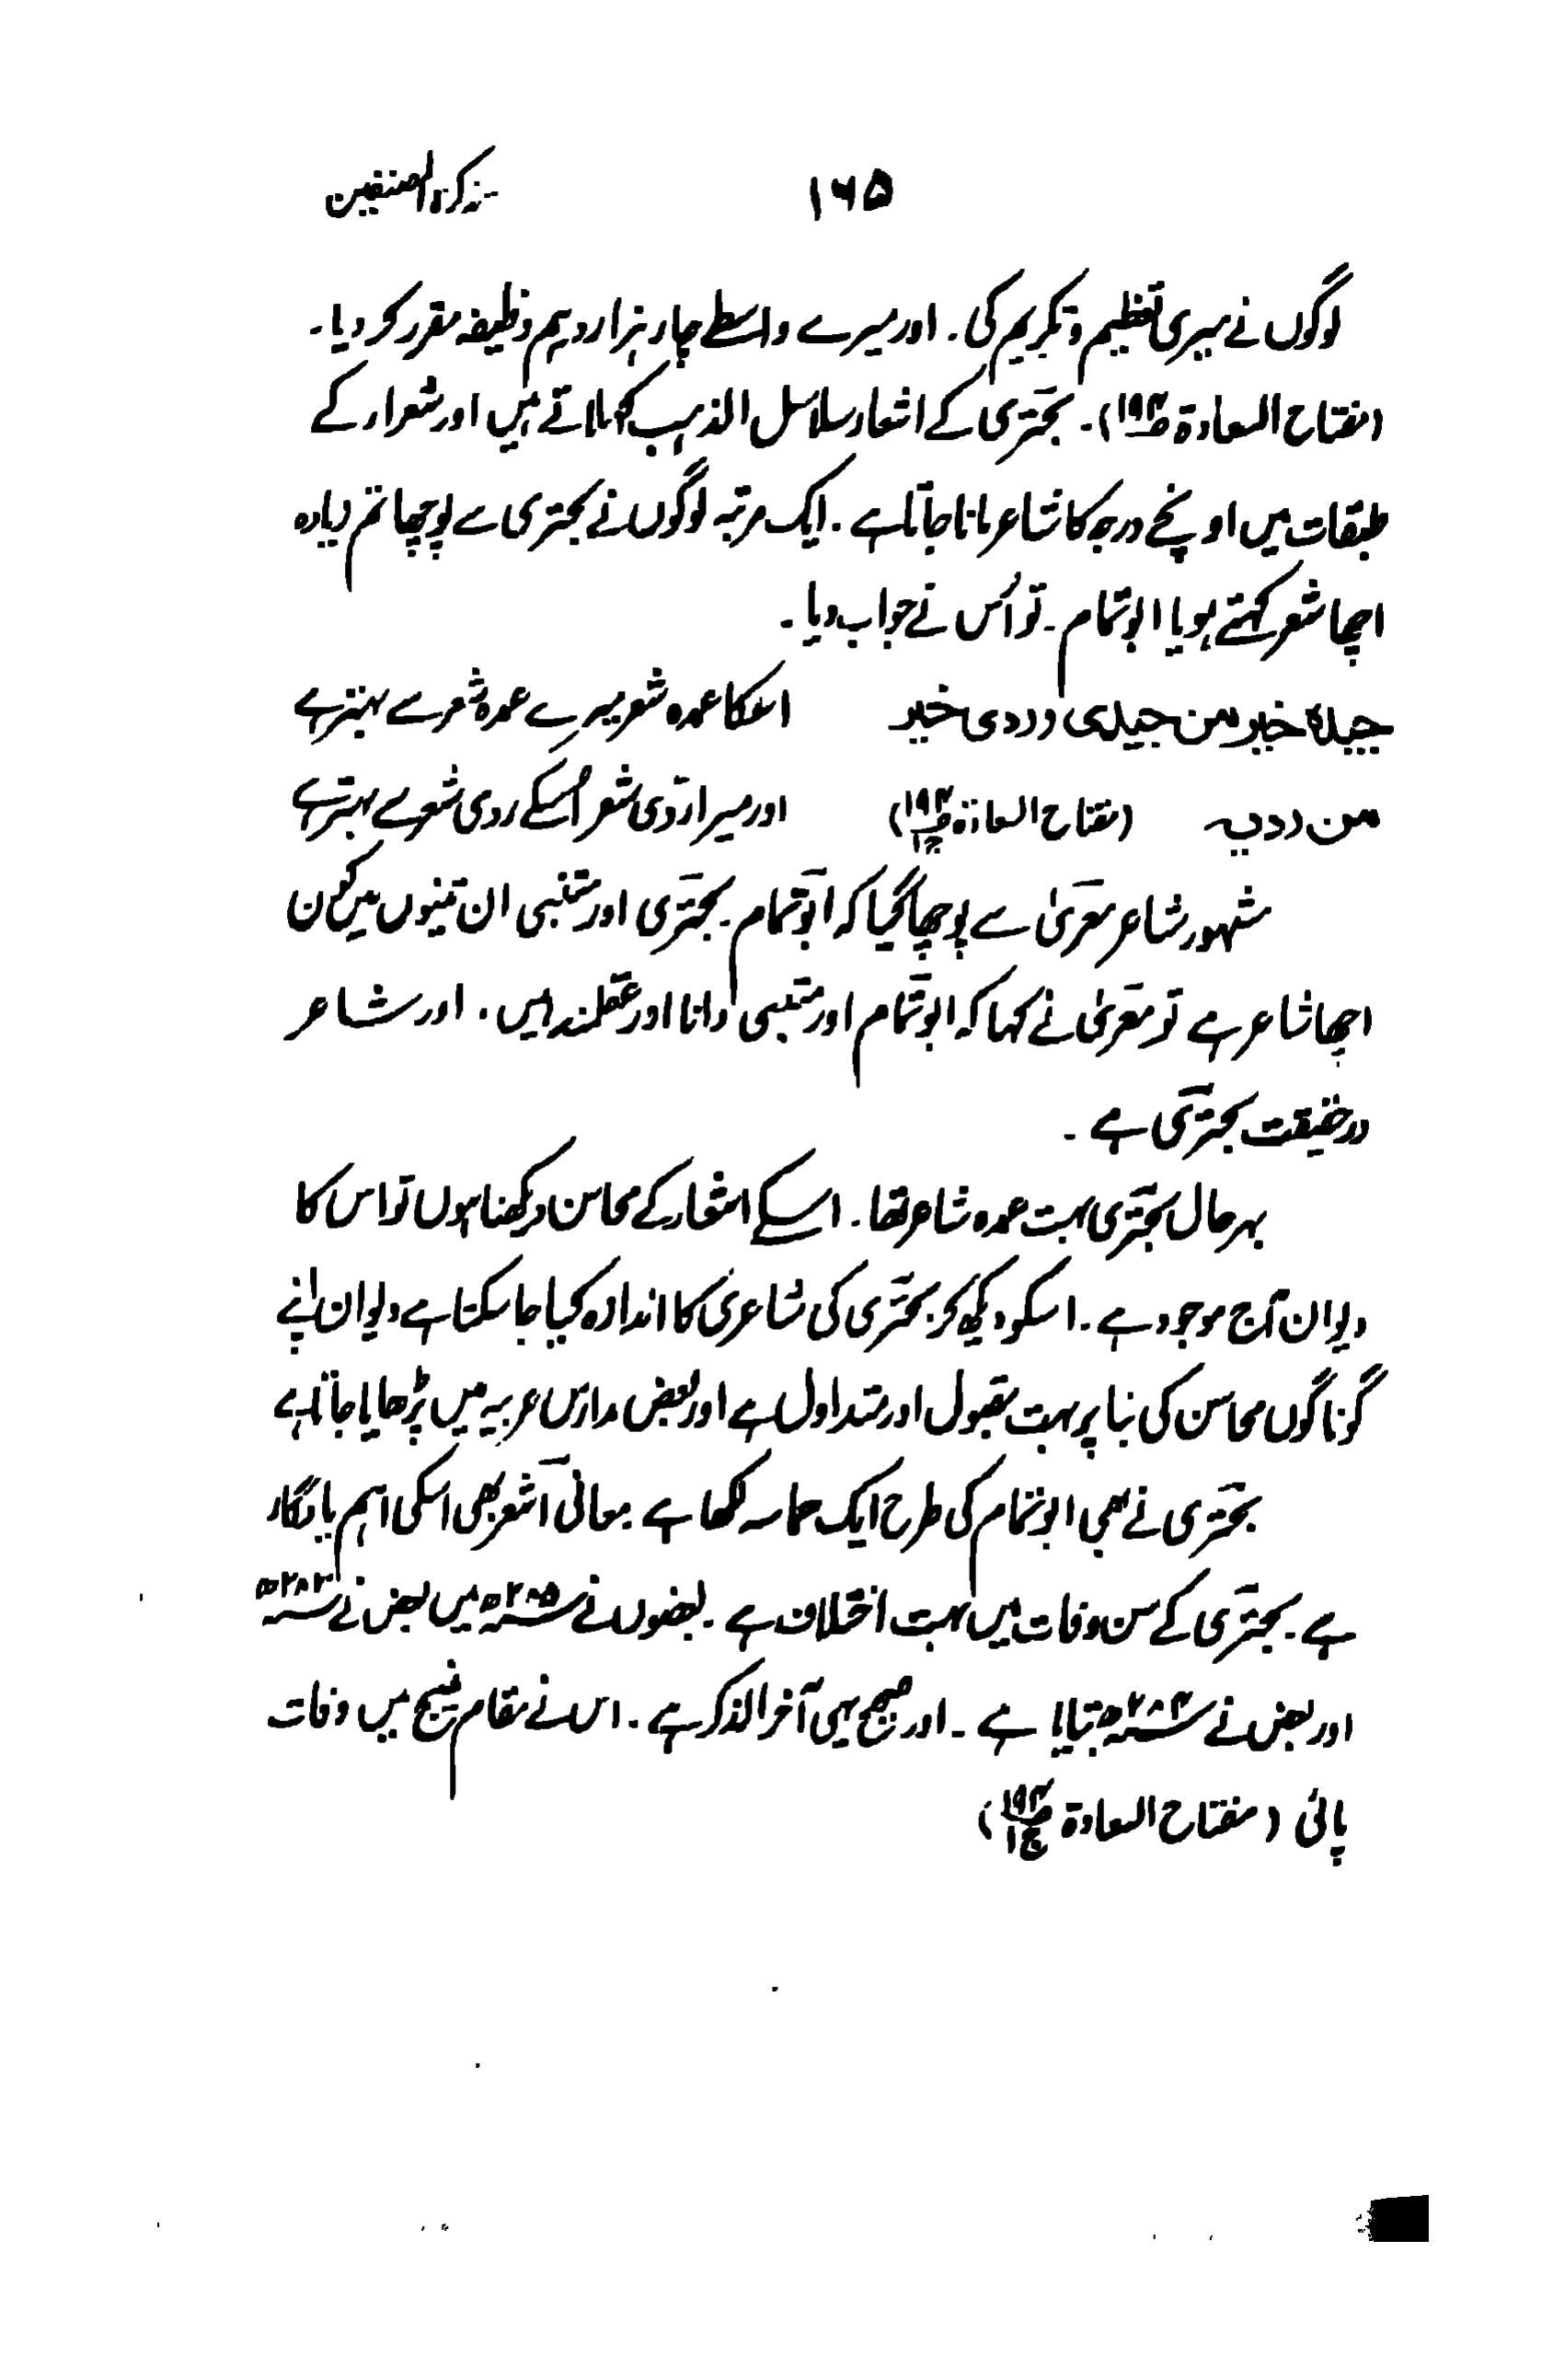 تذکرۃ المصنفین ۱۶۵
لوگوں نے میری تعظیم و تکریم کی۔ اور میرے واسطے چار ہزار درہم وظیفہ مقرر کر دیا۔
(مفتاح السعادۃ ص۱۹۳)۔ بحتری کے اشعار سلاسل الذہب کہلاتے ہیں اور شعراء کے
طبقات میں اونچے درجہ کا شاعر مانا جاتا ہے۔ ایک مرتبہ لوگوں نے بحتری سے پوچھا تم زیادہ
اچھا شعر کہتے ہو یا ابو تمام۔ تو اُس نے جواب دیا۔
جیدہ خیر من جیدی ورددی خیر اسکا عمدہ شعر میرے عمدہ شعر سے بہتر ہے
من ردیہ (مفتاح السعادۃ ص۱۹۳ ج۱) اور میرا ردّی شعر اُسکے ردی شعر سے بہتر ہے
مشہور شاعر معریٰ سے پوچھا گیا کہ ابو تمام۔ بحتری اور متنبی ان تینوں میں کون
اچھا شاعر ہے تو معریٰ نے کہا کہ ابو تمام اور متنبی دانا اور عقلمند ہیں۔ اور شاعر
در حقیقت بحتری ہے۔
بہر حال بحتری بہت عمدہ شاعر تھا۔ اسکے اشعار کے محاسن دیکھنا ہوں تو اس کا
دیوان آج موجود ہے۔ اسکو دیکھ کر بحتری کی شاعری کا اندازہ کیا جا سکتا ہے دیوان اپنے
گوناگوں محاسن کی بنا پر بہت مقبول اور متداول ہے اور بعض مدارس عربیہ میں پڑھایا جاتا ہے
بحتری نے بھی ابو تمام کی طرح ایک حماسہ لکھا ہے۔ معانی الشعر بھی اسکی اہم یادگار
ہے۔ بحتری کے سن وفات میں بہت اختلاف ہے۔ بعضوں نے ۲۸۵ھ میں بعض نے ۲۸۳ھ
اور بعض نے ۲۸۴ھ بتایا ہے۔ اور صحیح یہی آخر الذکر ہے۔ اس نے مقام منبج میں وفات
پائی (مفتاح السعادۃ ص۱۹۳ ج۱)